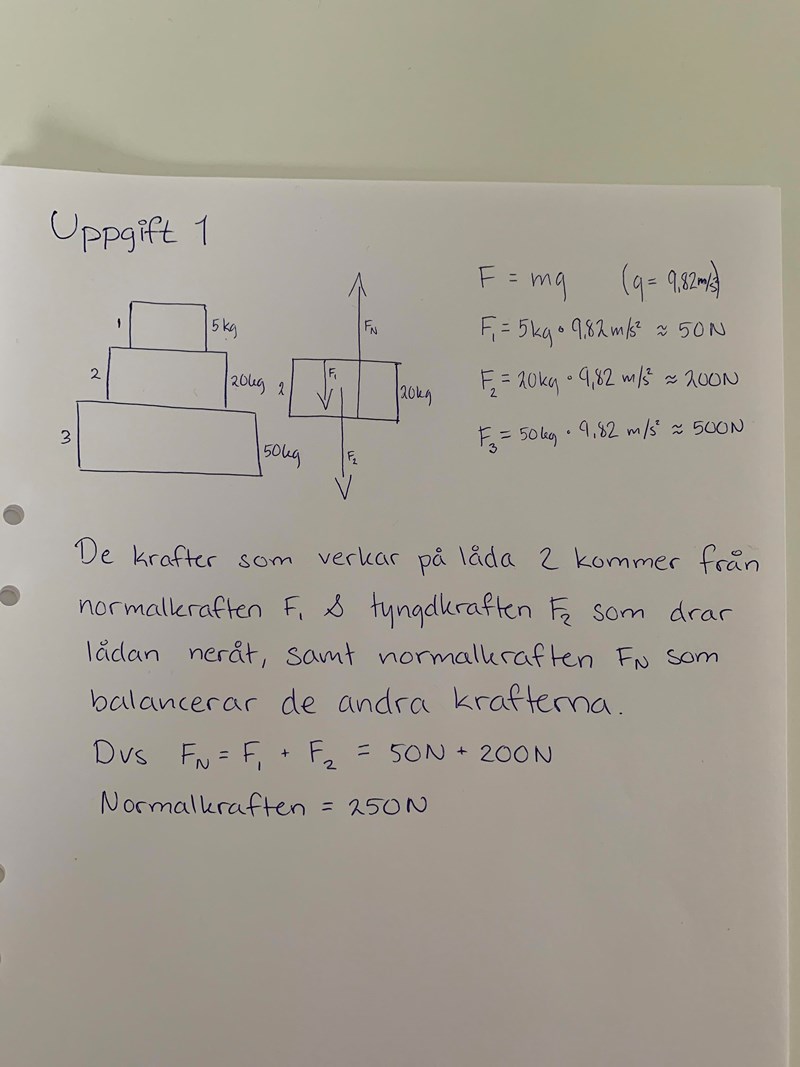 Uppgift 1
1
5kg
2
20kg
3
50kg
FN
F₁
2
20kg
F₂
F = mg (g = 9,82 m/s²)
F₁ = 5kg • 9,82 m/s² ≈ 50N
F₂ = 20kg • 9,82 m/s² ≈ 200N
F₃ = 50kg • 9,82 m/s² ≈ 500N
De krafter som verkar på låda 2 kommer från
normalkraften F₁ & tyngdkraften F₂ som drar
lådan neråt, samt normalkraften FN som
balancerar de andra krafterna.
Dvs FN = F₁ + F₂ = 50N + 200N
Normalkraften = 250N